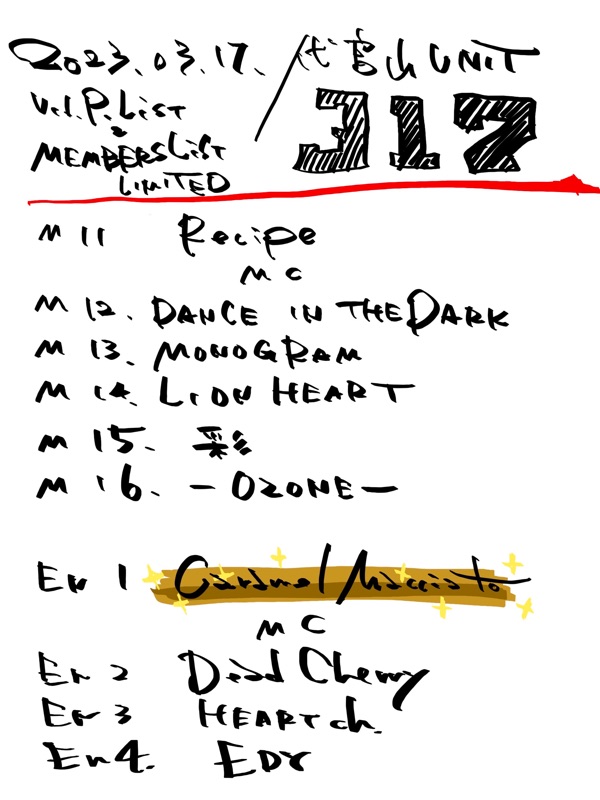 2023.03.17. / 代官山UNIT
V.I.P.LIST
&
MEMBERSLIST
LIMITED
317
M 11 Recipe
MC
M 12. DANCE IN THE DARK
M 13. MONOGRAM
M 14. LION HEART
M 15. 彩
M 16. -OZONE-
En 1 Caramel Macciato
MC
En 2 Dead Cherry
En 3 HEARTch.
En4. EDY